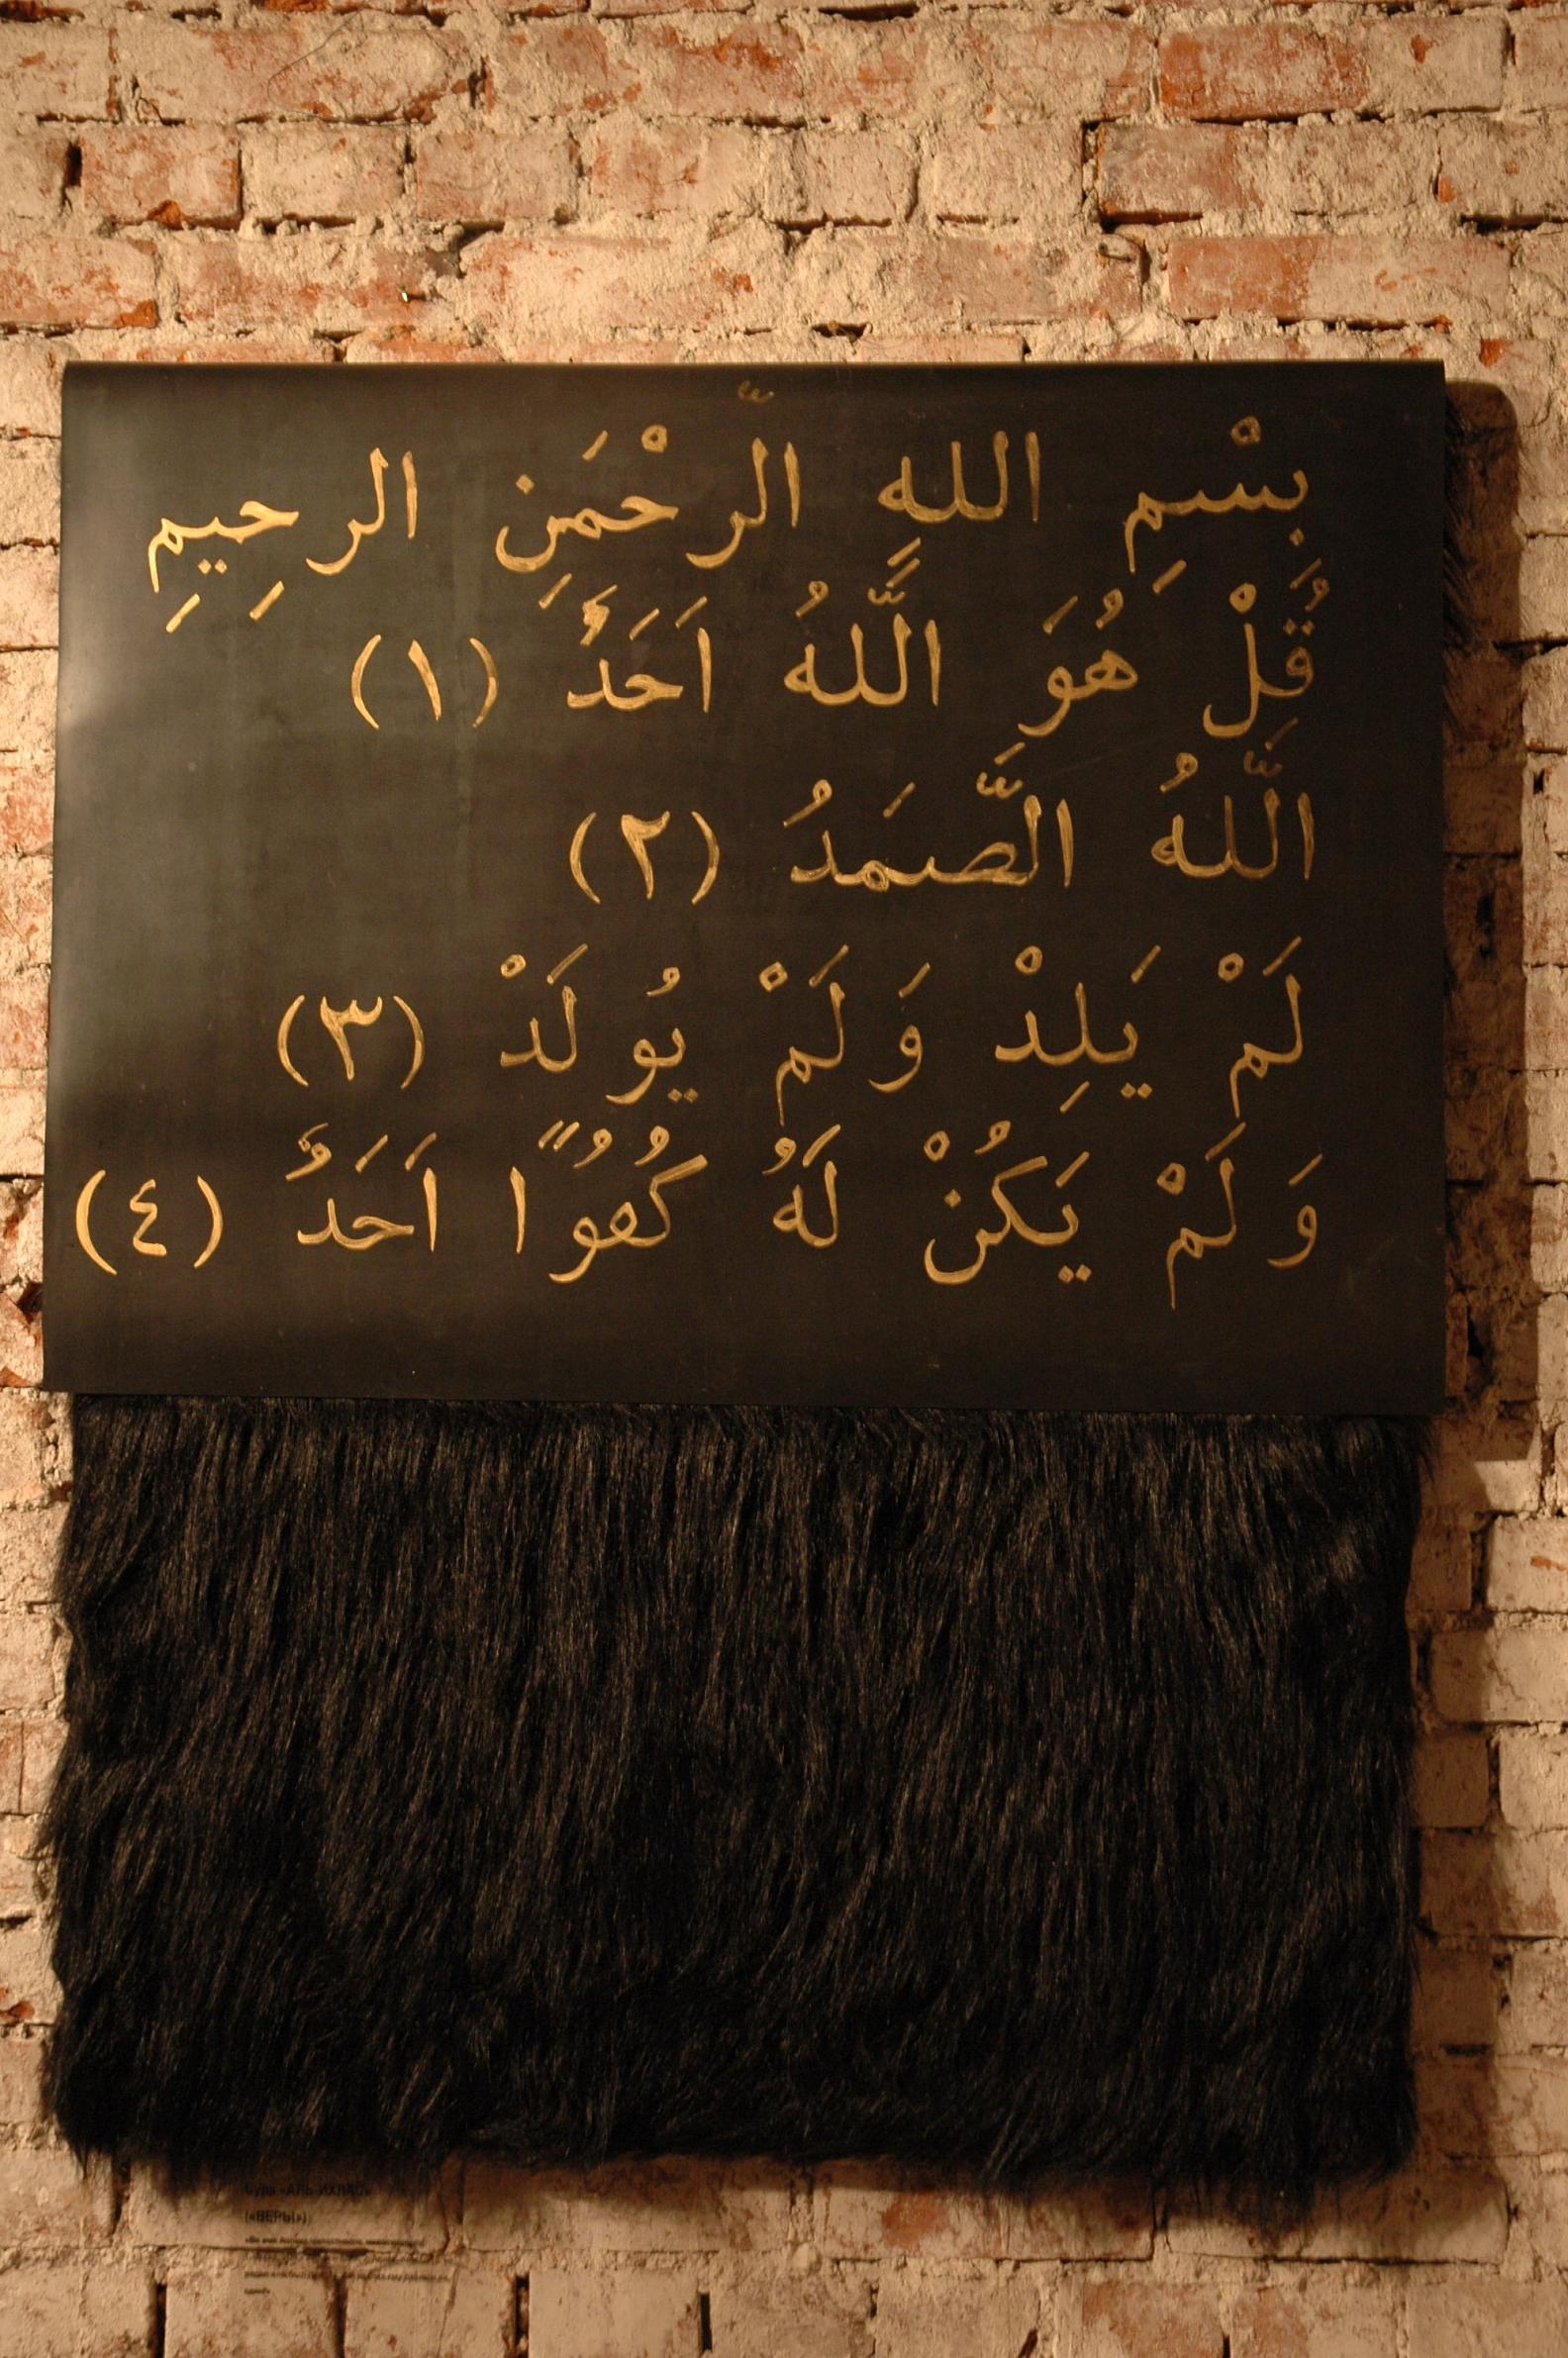 بِسْمِ اللهِ الرّحْمَنِ الرحِيمِ
قُلْ هُوَ اللَّهُ اَحَدٌ (١)
اللَّهُ الصَّمَدُ (٢)
لَمْ يَلِدْ وَلَمْ يُولَدْ (٣)
وَلَمْ يَكُنْ لَهُ كُفُوًا اَحَدٌ (٤)
Сура «АЛЬ-ИХЛАС»